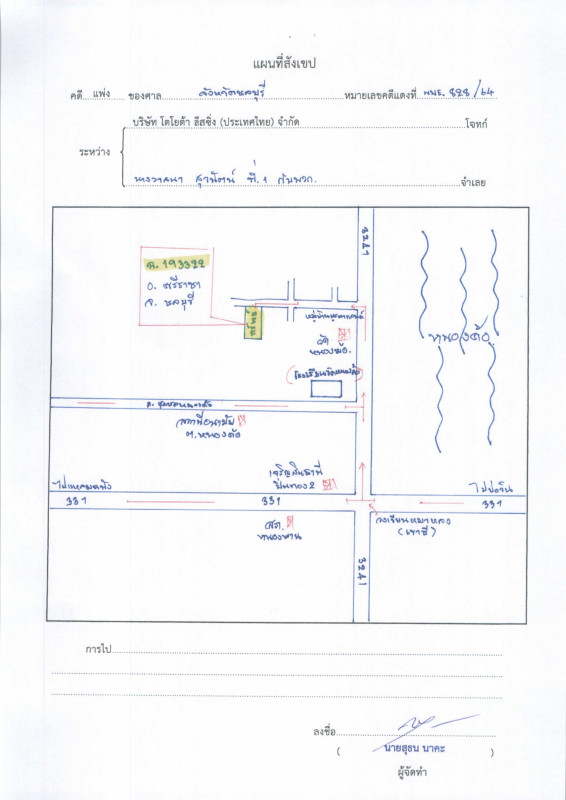 แผนที่สังเขป
คดี แพ่ง ของศาล จังหวัดชลบุรี หมายเลขคดีแดงที่ ผบE. 828/64
บริษัท โตโยต้า ลีสซิ่ง (ประเทศไทย) จำกัด โจทก์
ระหว่าง
นางวาสนา สุวนิตน์ ที่ 1 กับพวก. จำเลย
3241
ฉ. 193322
อ. ศรีราชา
จ. ชลบุรี
ทรัพย์
วัด
หนองค้อ.
(โรงเรียนวัดหนองค้อ)
หนองค้อ
ต. หนองค้อ
เจริญสินธานี
ปิ่นทอง 2
ไปแหลมฉบัง
ไปบ่อวิน
331
331
331
หนองขาม
(เขาชี)
3241
การไป
ลงชื่อ
( นายสุธน นาคะ )
ผู้จัดทำ